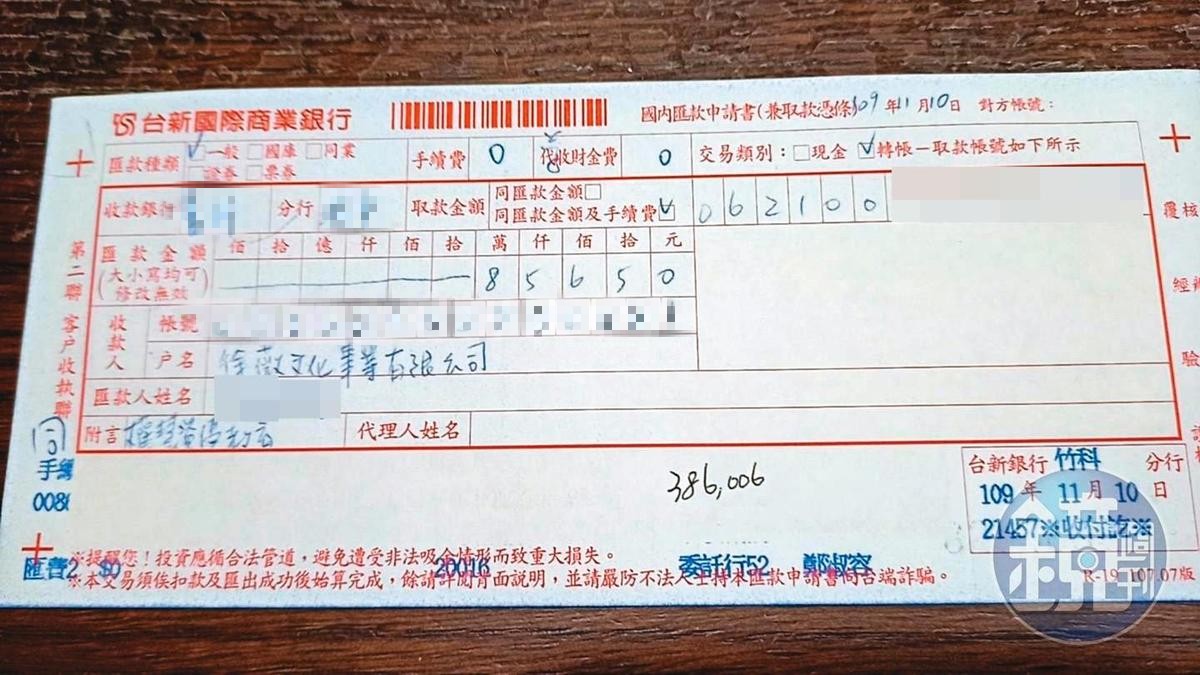 台新國際商業銀行 國內匯款申請書(兼取款憑條) 109年11月10日 對方帳號：
匯款種類 ✓一般 □國庫 □同業 □證券 □票券 手續費 0 代收財金費 0 交易類別：□現金 ☑轉帳－取款帳號如下所示
收款銀行 分行 取款金額 同匯款金額□ 同匯款金額及手續費☑ 062100
匯款金額 (大小寫均可 修改無效) 佰 拾 億 仟 佰 拾 萬 仟 佰 拾 元
8 5 6 5 0
收款人 帳號
戶名 徐薇文化事業有限公司
匯款人姓名
附言 代理人姓名
第二聯 客戶收執聯
覆核
經辦
驗
386,006
台新銀行 竹科 分行
109年 11月 10日
21457※收付訖※
手續
008
匯費2 $0 20016 委託行52 鄭淑容
※提醒您！投資應循合法管道，避免遭受非法吸金情形而致重大損失。
※本交易須俟扣款及匯出成功後始算完成，餘請詳閱背面說明，並請嚴防不法人士持本匯款申請書向台端詐騙。
R-19 107.07版